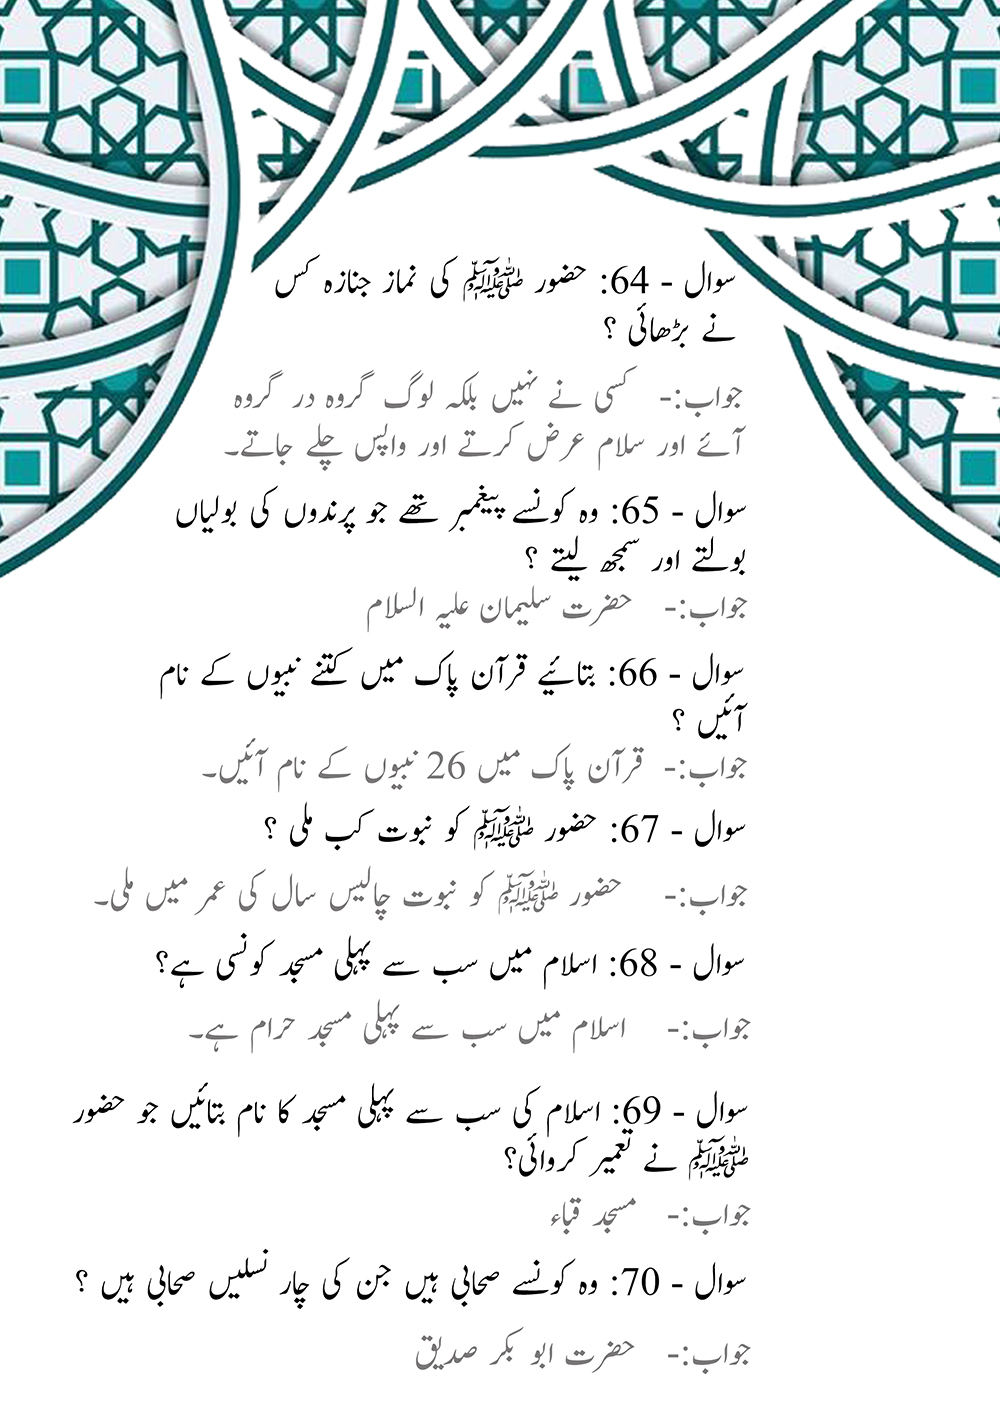 سوال - 64: حضور ﷺ کی نماز جنازہ کس
نے بڑھائی ؟
جواب:- کسی نے نہیں بلکہ لوگ گروہ در گروہ
آئے اور سلام عرض کرتے اور واپس چلے جاتے۔
سوال - 65: وہ کونسے پیغمبر تھے جو پرندوں کی بولیاں
بولتے اور سمجھ لیتے ؟
جواب:- حضرت سلیمان علیہ السلام
سوال - 66: بتائیے قرآن پاک میں کتنے نبیوں کے نام
آئیں ؟
جواب:- قرآن پاک میں 26 نبیوں کے نام آئیں۔
سوال - 67: حضور ﷺ کو نبوت کب ملی ؟
جواب:- حضور ﷺ کو نبوت چالیس سال کی عمر میں ملی۔
سوال - 68: اسلام میں سب سے پہلی مسجد کونسی ہے؟
جواب:- اسلام میں سب سے پہلی مسجد حرام ہے۔
سوال - 69: اسلام کی سب سے پہلی مسجد کا نام بتائیں جو حضور
ﷺ نے تعمیر کروائی؟
جواب:- مسجد قباء
سوال - 70: وہ کونسے صحابی ہیں جن کی چار نسلیں صحابی ہیں ؟
جواب:- حضرت ابو بکر صدیق